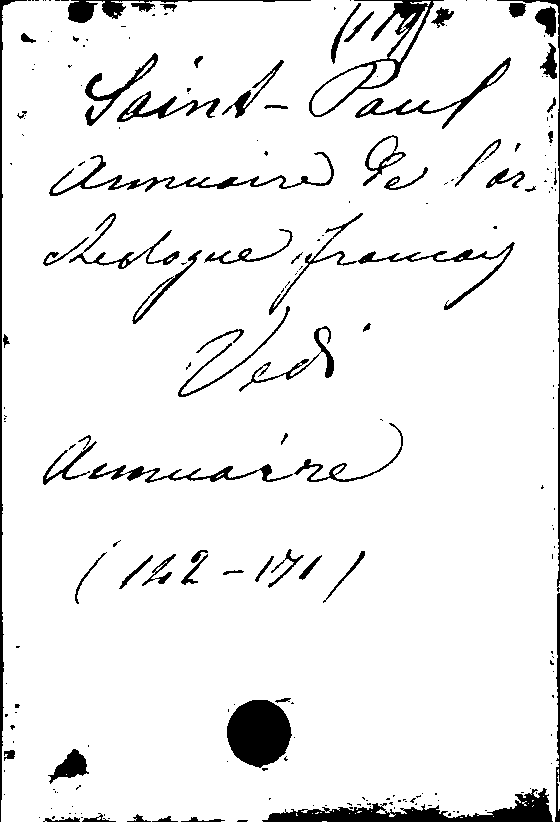 (119)
Saint-Paul
Annuaire de l'ar-
cheologue français
Vedi
Annuaire
(142-171)